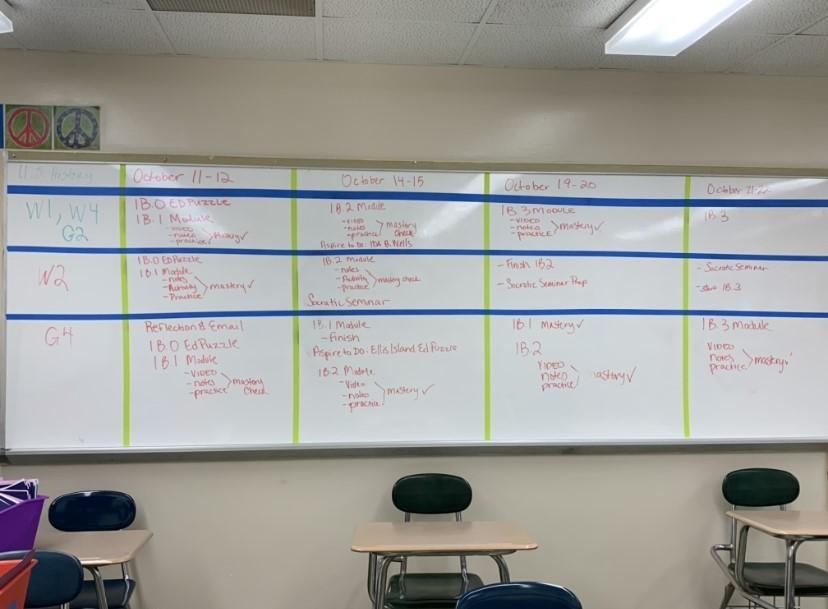 U.S. History
October 11-12
October 14-15
October 19-20
October 21-22
W1, W4
G2
1B.0 EDPuzzle
1B.1 Module
- VIDEO
- notes
- practice
Mastery ✓
1B.2 Module
- VIDEO
- notes
- practice
mastery check
Aspire to Do: IDA B. Wells
1B.3 MODULE
- VIDEO
- notes
- PRACTICE
mastery ✓
1B.3
W2
1B.0 EDPuzzle
1B.1 Module
- notes
- Activity
- Practice
mastery ✓
1B.2 module
- notes
- Activity
- practice
mastery check
Socratic Seminar
- Finish 1B2
- Socratic Seminar Prep
- Socratic Seminar
- 1B.3
G4
Reflection & Email
1B.0 EdPuzzle
1B.1 Module
- VIDEO
- notes
- practice
mastery check
1B.1 Module
- Finish
Aspire to DO: Ellis Island Ed Puzzle
1B.2 Module
- Video
- notes
- practice
mastery ✓
1B.1 Mastery ✓
1B.2
VIDEO
notes
practice
mastery ✓
1B.3 Module
VIDEO
notes
practice
mastery ✓